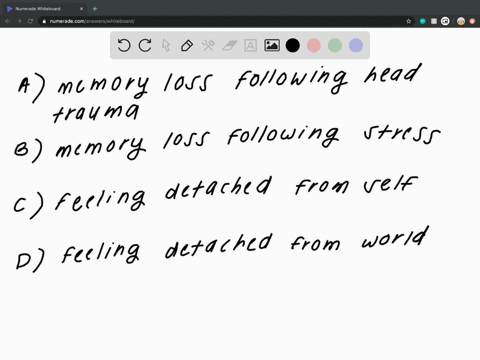 Numerade Whiteboard
numerade.com/answers/whiteboard/
A) memory loss following head
trauma
B) memory loss following stress
C) feeling detached from self
D) feeling detached from world